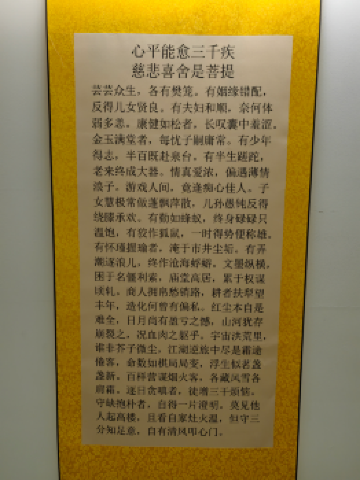 心平能愈三千疾
慈悲喜舍是菩提
芸芸众生，各有樊笼。有姻缘错配，
反得儿女贤良。有夫妇和顺，奈何体
弱多恙。康健如松者，长叹囊中羞涩。
金玉满堂者，每忧子嗣庸常。有少年
得志，半百既赴泉台。有半生蹉跎，
老来终成大器。情真爱浓，偏遇薄情
浪子。游戏人间，竟逢痴心佳人。子
女慧极常做蓬飘萍散，儿孙愚钝反得
绕膝承欢。有勤如蜂蚁，终身碌碌只
温饱，有狡作狐鼠，一时得势便称雄。
有怀瑾握瑜者，淹于市井尘埃。有弄
潮逐浪儿，终作沧海蜉蝣。文墨纵横，
困于名缰利索，庙堂高居，累于权谋
倾轧。商人拥 愁销路，耕者扶犁望
丰年，造化何曾有偏私。红尘本自是
难全，日月尚有盈亏之憾，山河犹存
崩裂之 ，况血肉之躯乎。宇宙洪荒里，
谁非芥子微尘，江湖逆旅中尽是霜途
倦客，命数如棋局局变，浮生似茗盏
盏新。百样营谋烟火客，各藏风雪各
藏霜，逐日贪嗔者，徒增三千烦恼。
守缺抱朴者，自得一片澄明。莫见他
人起高楼，且看自家灶火温，但守三
分知足意，自有清风叩心门。